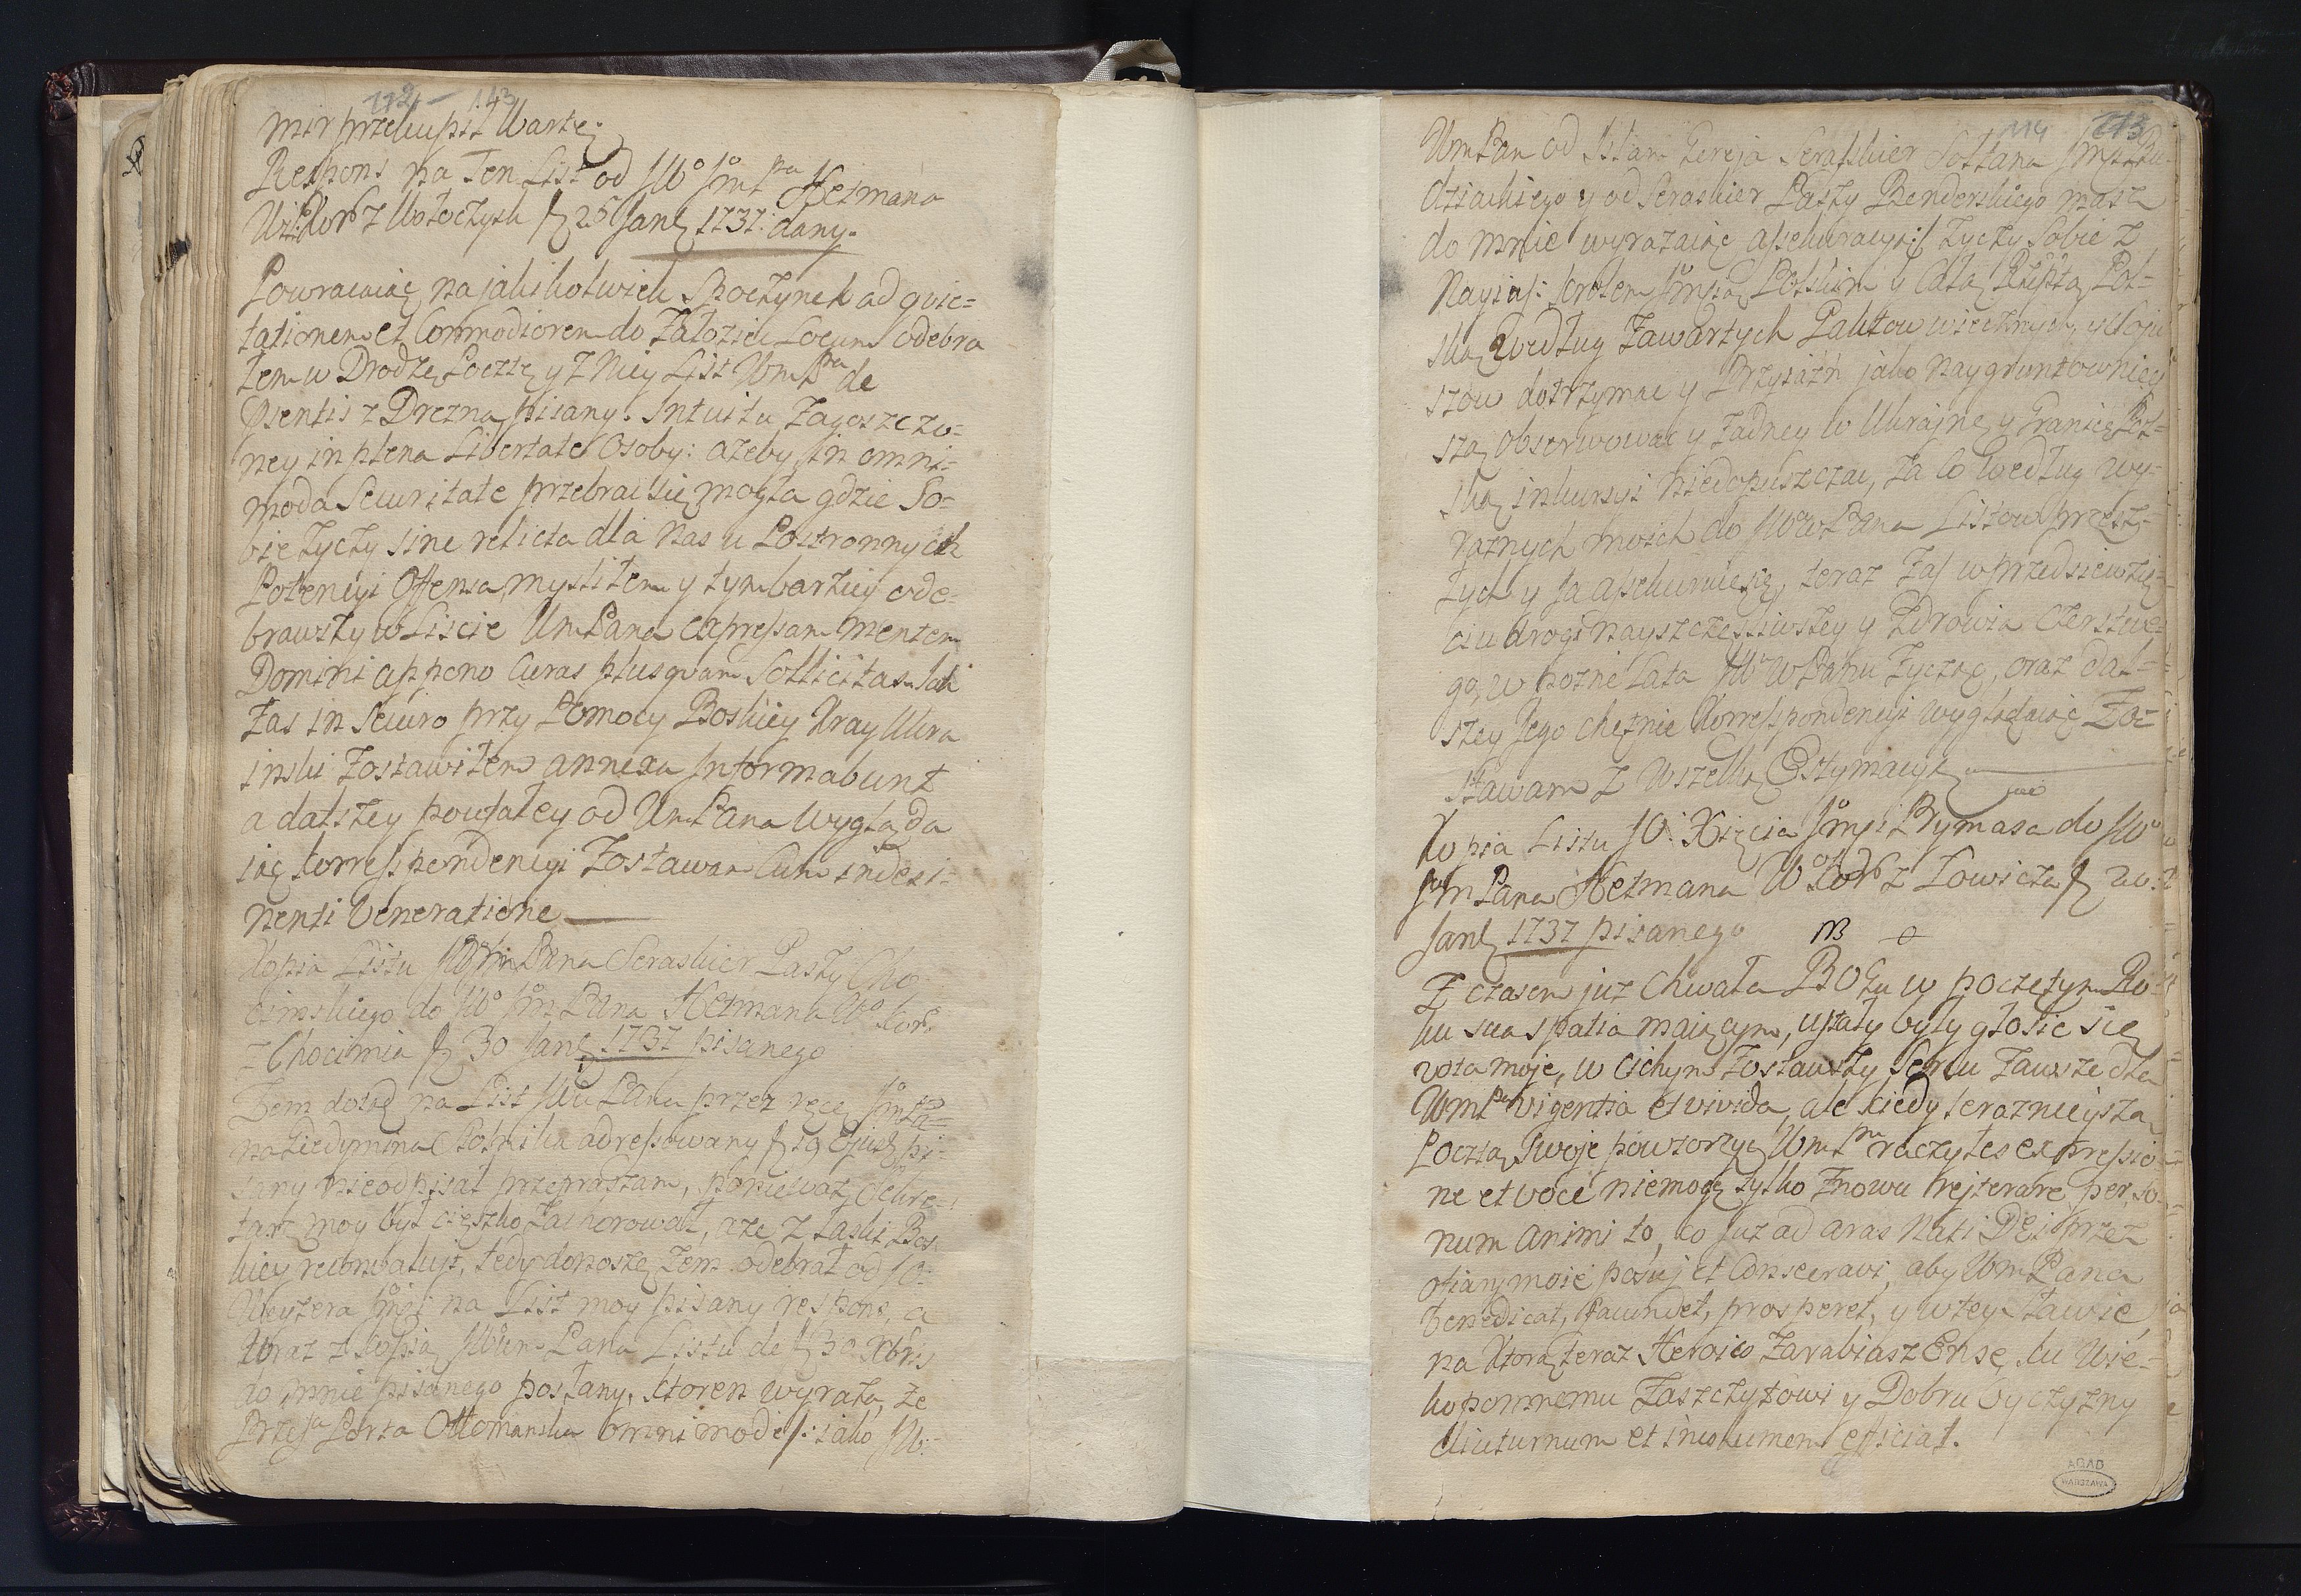 112 - 143
mir przekupił Wartę.
Respons na Ten List od JWo Jm Pna Hetmana
WKor z Wołoczysk 25 Jan 1737. dany.
Powracaiąc na jakikolwiek Spoczynek ad quie=
tationem et Commodiorem do Załoziec Locum odebra
łem w Drodze Pocztę y z Niey List Wm Pna de
psentis z Drezna pisany. Intuitu Zagoszczo-
ney in plena Libertate Osoby: ażeby in omni=
moda Securitate przebrać się mogła gdzie So=
bie życzy sine relicta dla nas u Postronnych
Potencyi Offensa, myśliłem y tym barziey ode=
brawszy w Liscie Wm Pana expressam mentem
Domini appono Curas plusquam Sollicitas. Jak
Zas in Securo przy Pomocy Boskiey Kray Ukra
inski Zostawiłem annexa Informabunt
a dalszey poufałey od Wm Pana wygląda
iąc korrespondencyi Zostawam Cum indesi=
nenti Veneratione
Kopia Listu JWm Pana Seraskier Paszy Cho
cimskiego do JWo Jm Pana Hetmana Wo Kor.
z Chocimia 30 Jan 1737 pisanego
Żem dotąd na List JWu Pana przez ręce Jm Pa=
na Giedymina Rotmista adressowany 19 pi=
sany nieodpisał przepraszam, ponieważ Sekre-
tarz moy był ciężko zachorował, aże z łaski Bos
kiey rekonwaluit, tedy donoszę żem odebrał od JO:
Wezyra Jmsi na List moy pisany respons, a
teraz z kopią JWm Pana Listu de 30 Xbris
do mnie pisanego posłany, ktoren wyraża, że
Prześa Porta Ottomanska omnimode: iako JW:
114 113
Wm Pan od Islam Gereja Seraskier Sołtana Jmsi Bu
dziackiego y od Seraskier Paszy Benderskiego masz
do mnie wyrażaiąc assekuracyą: życzy Sobie z
Nayias: Krolem Jmsią Polskim y Całą Rzptą Pol=
ską według Zawartych Paktow wiecznych y Soju
szow dotrzymac y Przyiaźń jako naygruntowniey
szą obserwowac y żadney w Ukrainę y Granicę Pol=
ską inkursyi niedopuszczac, za co według wy-
raznych moich do JWo Pana Listow przesz=
łych y Ja assekuruię się, teraz zas w przedsiewzię=
ciu drogi nayszczęsliwszey y Zdrowia czerstwe=
go, w pozne Lata JWo WPanu życząc, oraz dal=
szey Jego chętnie Korrespondencyi wyglądaiąc Zo=
stawam z wszelką Estymacyą
Kopia Listu JO: Xięcia Jmsi Prymasa do JWo
Jm Pana Hetmana Wo Kor z Lowicza 20.
Jan 1737 pisanego
Z czasem już Chwała BOGu w poczętym Ro=
ku sua spatia maiącym, ustały były głosic się
vota moje, w cichym Zostawszy Sercu Zawsze dla
Wm Pa vigentia et vivida, ale kiedy terazniejszą
Pocztą Swoje powtorzyc Wm Pan raczyłes expressio
ne et voce niemogę tylko Znowu rejterare per so=
num animi to, co Juz ad aras Nati Dei przez
ofiary moie posui et Consecravi, aby Wm Pana
benedicat, faecundet, prosperet, y w tey sławie,
na ktorą teraz Heroico Zarabiasz Ense, ku Wie=
kopomnemu Zaszczytowi y Dobru Oyczyzny
diuturnum et incolumem efficiat.
AGAD
WARSZAWA